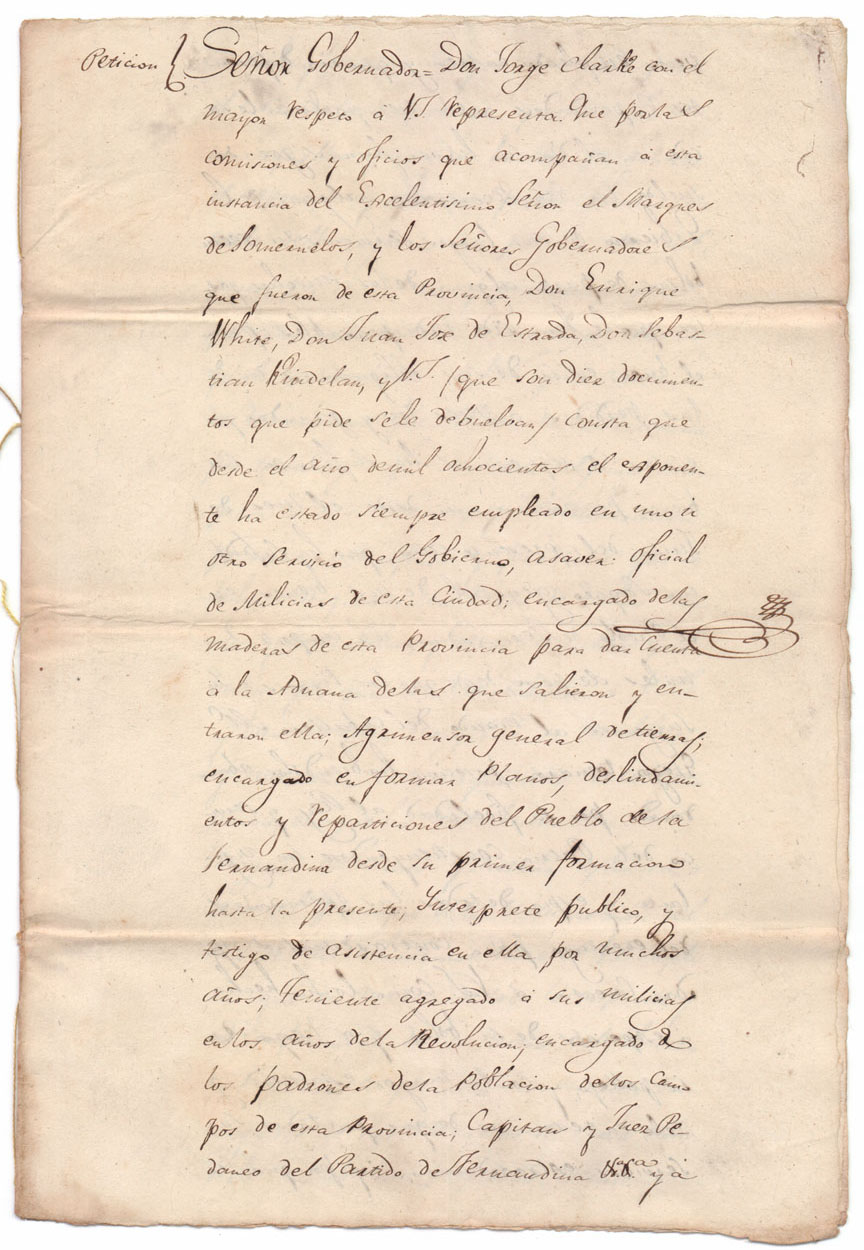 Peticion { Señor Gobernador= Don Jorge Clarke con el
mayor respeto à V.S. representa. Que por las
comisiones y oficios que acompañan à esta
instancia del Excelentisimo Señor el Marques
de Someruelos, y los Señores Gobernadores
que fueron de esta Provincia, Don Enrique
White, Don Juan Jose de Estrada, Don Sebas-
tian Kindelan, y V.S. /que son diez documen-
tos que pide se le debuelvan/ consta que
desde el año de mil ochocientos el exponen-
te ha estado siempre empleado en uno ù
otro servicio del Gobierno, asaver: oficial
de Milicias de esta Ciudad; encargado de las
maderas de esta Provincia para dar Cuenta
à la Aduana de las que salieron y en-
traron ella; Agrimensor general de tierras;
encargado en formar Planos, deslindami-
entos y reparticiones del Pueblo de la
Fernandina desde su primer formacion
hasta la presente; Interprete publico, y
testigo de asistencia en ella por muchos
años; Teniente agregado à sus milicias
en los años de la Revolucion; encargado de
los padrones de la Poblacion de los Cam-
pos de esta Provincia; Capitan y Juez Pe-
daneo del Partido de Fernandina y à